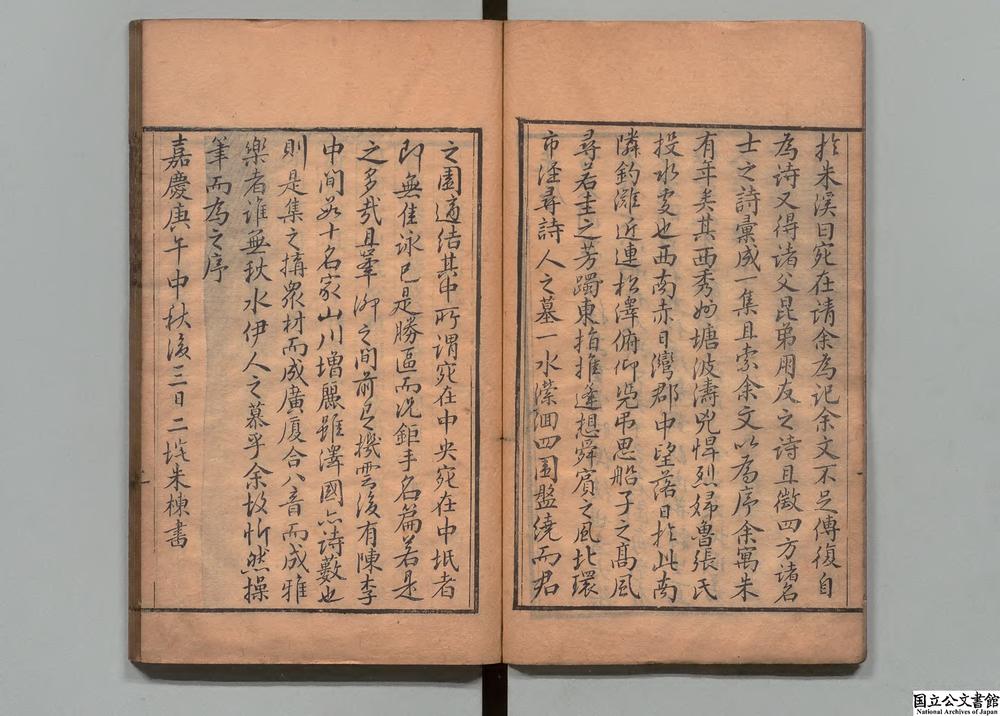 於朱溪曰宛在请余為記余文不足傳復自
為诗又得诸父昆弟朋友之诗且徵四方诸名
士之詩彙成一集且索余文以為序余寓朱
有年矣其西秀州塘波濤兇悍烈婦魯張氏
投水處也西南赤日灣郡中望落日於此南
隣釣灘近連松澤俯仰憑弔思船子之髙風
尋若圭之芳躅東指推篷想舜賓之風北環
市涇尋詩人之墓一水潆洄四圍盤繞而君
之園適結其中所谓宛在中央宛在中坻者
即無佳詠已是勝區而况鉅手名篇若是
之多哉且峯泖之间前有機雲後有陳李
中间數十名家山川增麗雖澤國亦詩藪也
則是集之搆衆材而成廣厦合八音而成雅
樂者谁無秋水伊人之慕乎余故忻然操
筆而為之序
嘉慶庚午中秋後三日二垞朱棟書
国立公文書館
National Archives of Japan